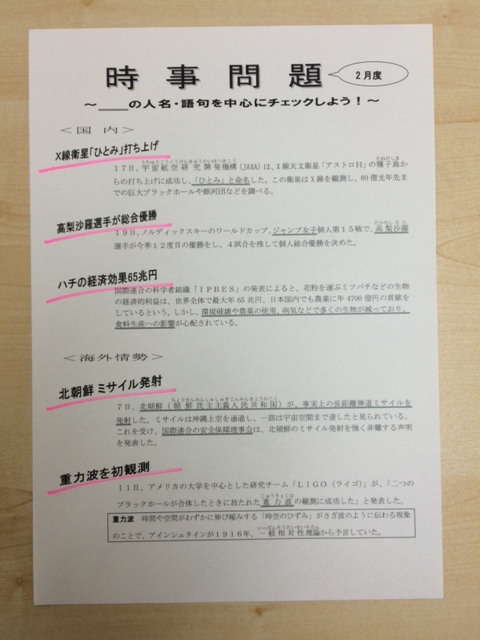 時事問題
2月度
～＿＿の人名・語句を中心にチェックしよう！～
＜国内＞
X線衛星｢ひとみ｣打ち上げ
17日、宇宙航空研究開発機構(JAXA)は、X線天文衛星「アストロH」の種子島か
らの打ち上げに成功し、「ひとみ」と命名した。この衛星はX線を観測し、80億光年先まで
の巨大ブラックホールや銀河団などを調べる。
高梨沙羅選手が総合優勝
19日、ノルディックスキーのワールドカップ、ジャンプ女子個人第15戦で、高梨沙羅
選手が今季12度目の優勝をし、4試合を残して個人総合優勝を決めた。
ハチの経済効果65兆円
国際連合の科学者組織「IPBES」の発表によると、花粉を運ぶミツバチなどの生物
の経済的利益は、世界全体で最大年65兆円、日本国内でも農業に年4700億円の貢献を
しているという。しかし、環境破壊や農薬の使用、病気などで多くの生物が減っており、
食料生産への影響が心配されている。
＜海外情勢＞
北朝鮮 ミサイル発射
ちょうせんみんしゅしゅぎじんみんきょうわこく
7日、北朝鮮（朝鮮民主主義人民共和国）が、事実上の長距離弾道ミサイルを
発射した。ミサイルは沖縄上空を通過し、一部は宇宙空間まで達したと見られている。
これを受け、国際連合の安全保障理事会は、北朝鮮のミサイル発射を強く非難する声明
を発表した。
重力波を初観測
11日、アメリカの大学を中心とした研究チーム「LIGO（ライゴ）」が、「二つの
じゅうりょくは
ブラックホールが合体したときに放たれた重力波の観測に成功した」と発表した。
重力波　時間や空間がわずかに伸び縮みする「時空のひずみ」がさざ波のように伝わる現象
いっぱんそうたいせいりろん
のことで、アインシュタインが1916年、一般相対性理論から予言していた。